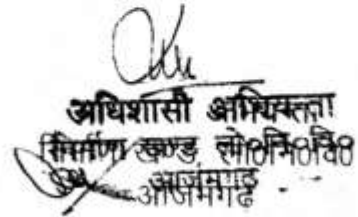 अधिशासी अभियन्ता
निर्माण खण्ड लो०नि०वि०
आजमगढ़